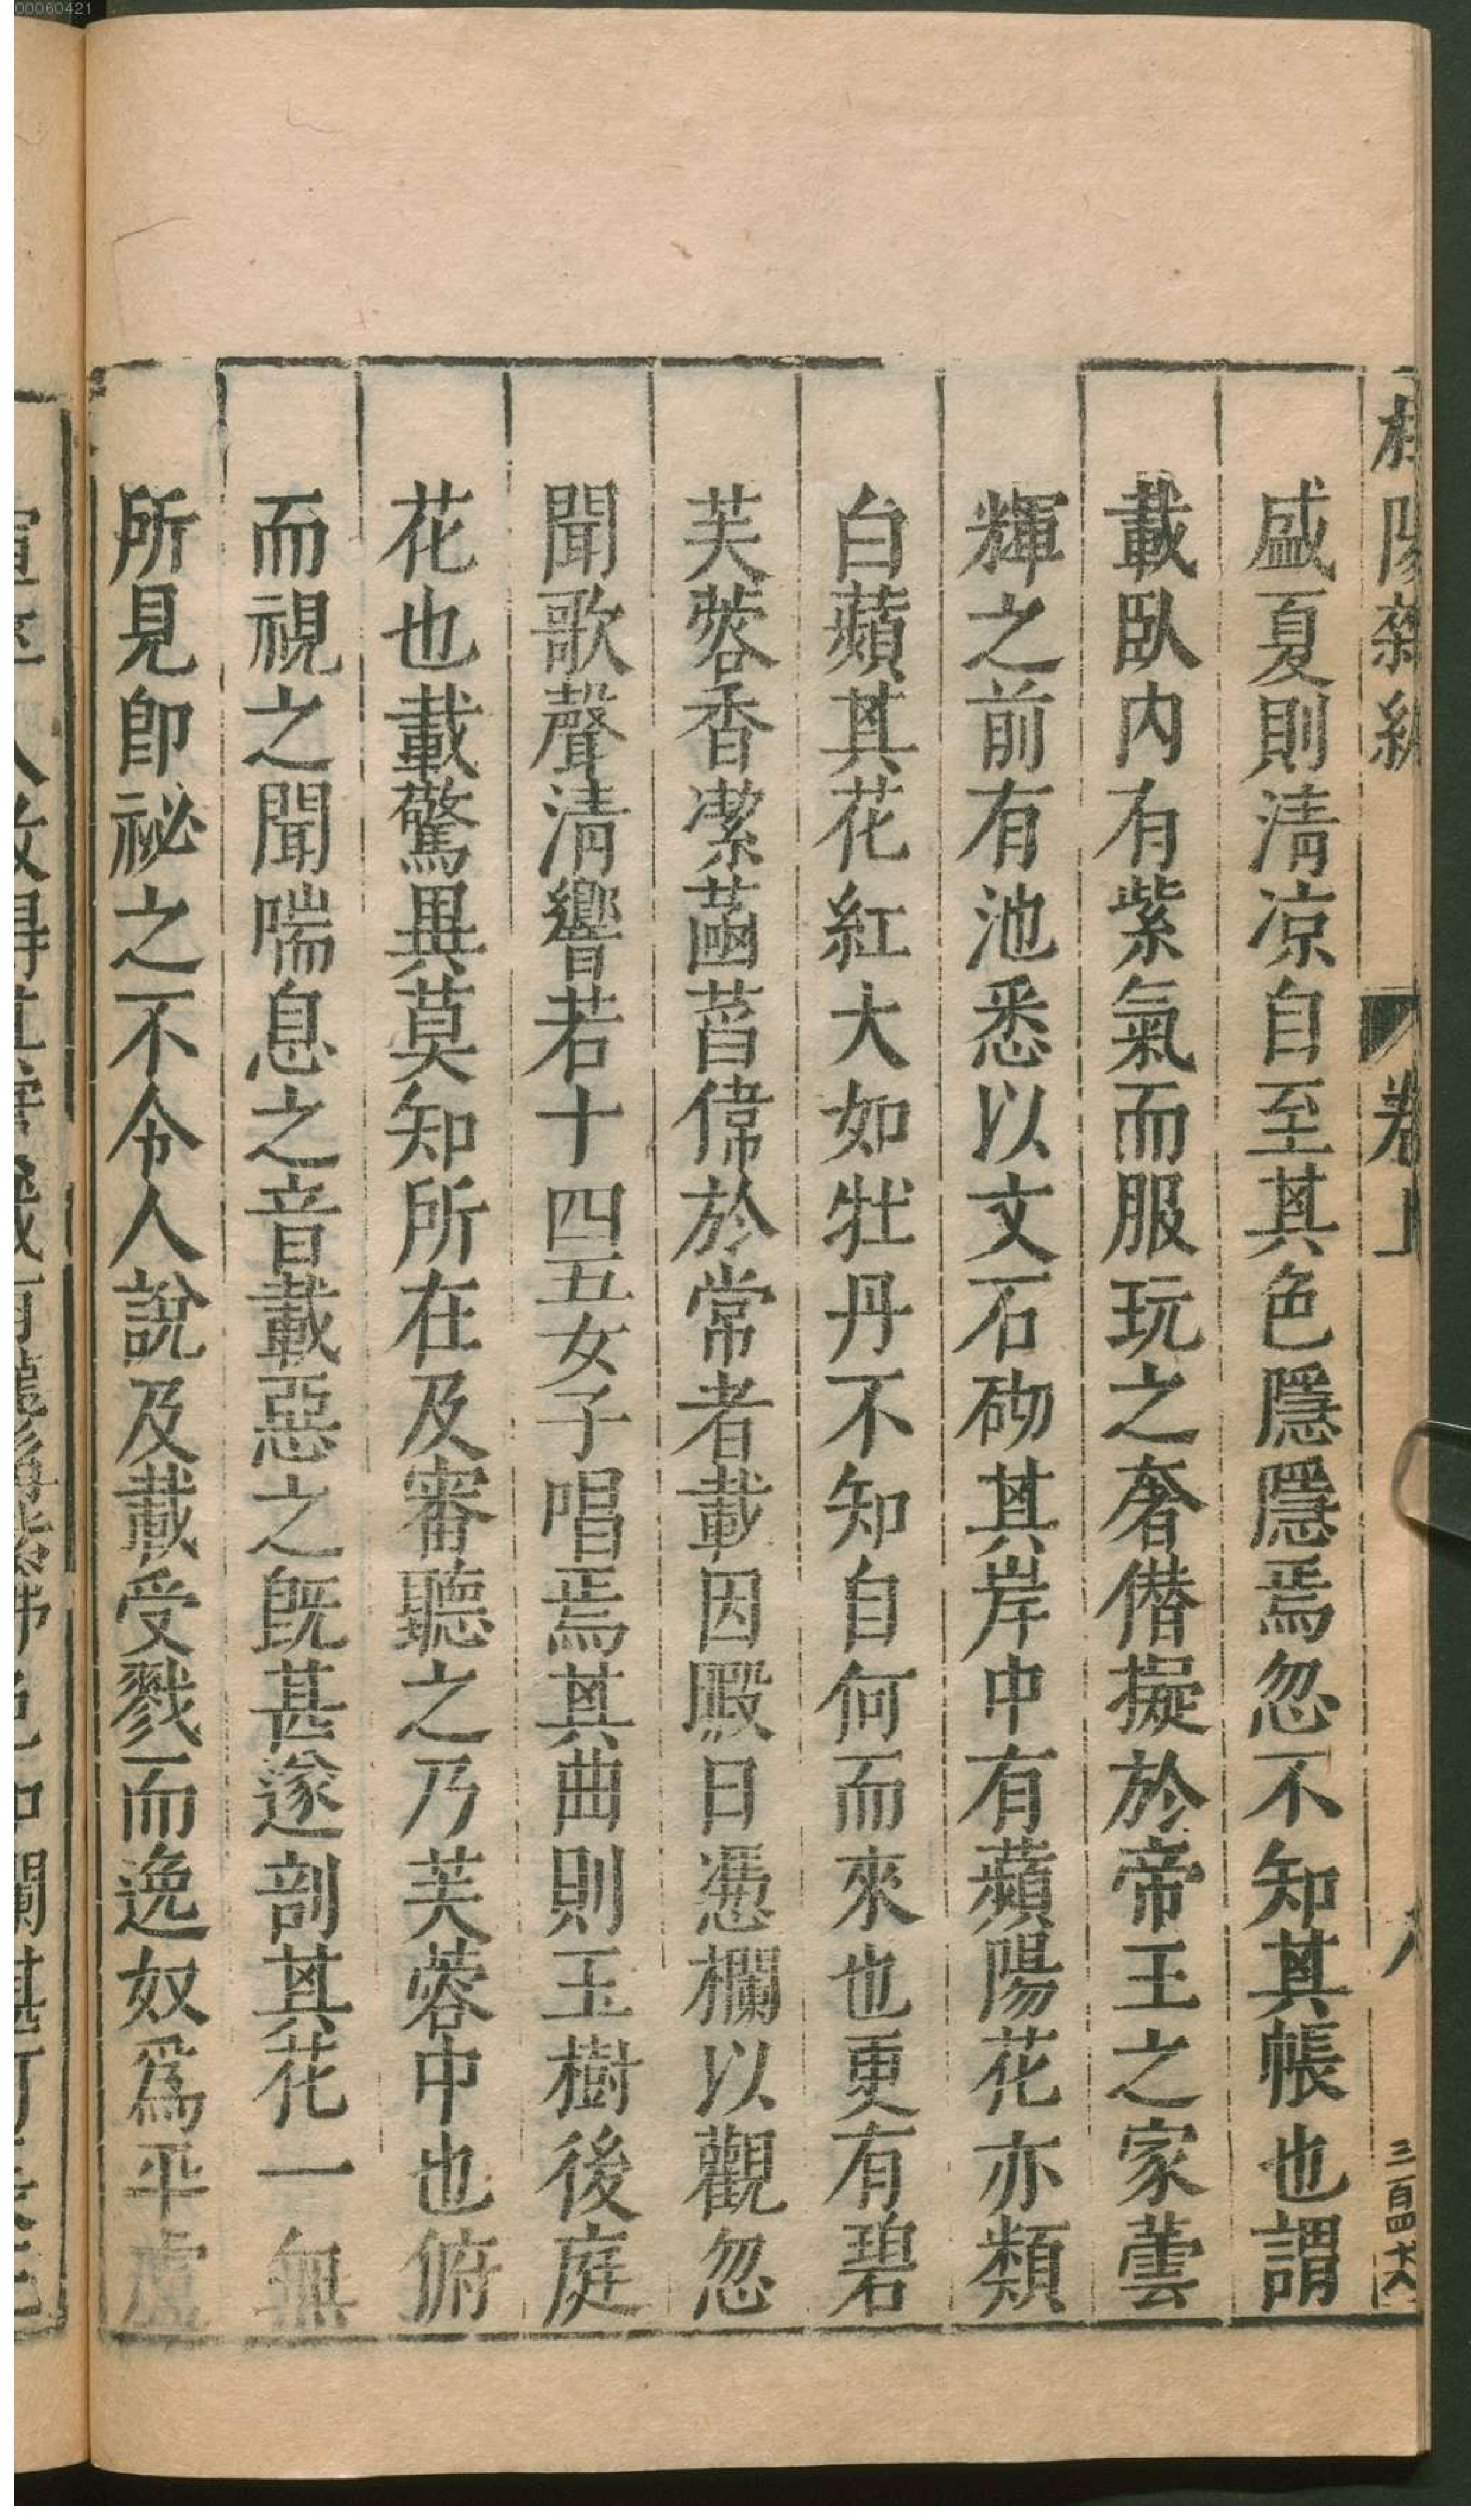 00060421
卷上
三百四十六
盛夏則淸凉自至其色隱隱焉忽不知其帳也謂
載臥内有紫氣而服玩之奢僭擬於帝王之家蕓
輝之前有池悉以文石砌其岸中有蘋陽花亦類
白蘋其花紅大如牡丹不知自何而來也更有碧
芙蓉香潔菡萏偉於常者載因暇日憑欄以觀忽
聞歌聲淸響若十四五女子唱焉其曲則玉樹後庭
花也載驚異莫知所在及審聽之乃芙蓉中也俯
而視之聞喘息之音載惡之旣甚遂剖其花一無
所見卽祕之不令人說及載受戮而逸奴爲平盧